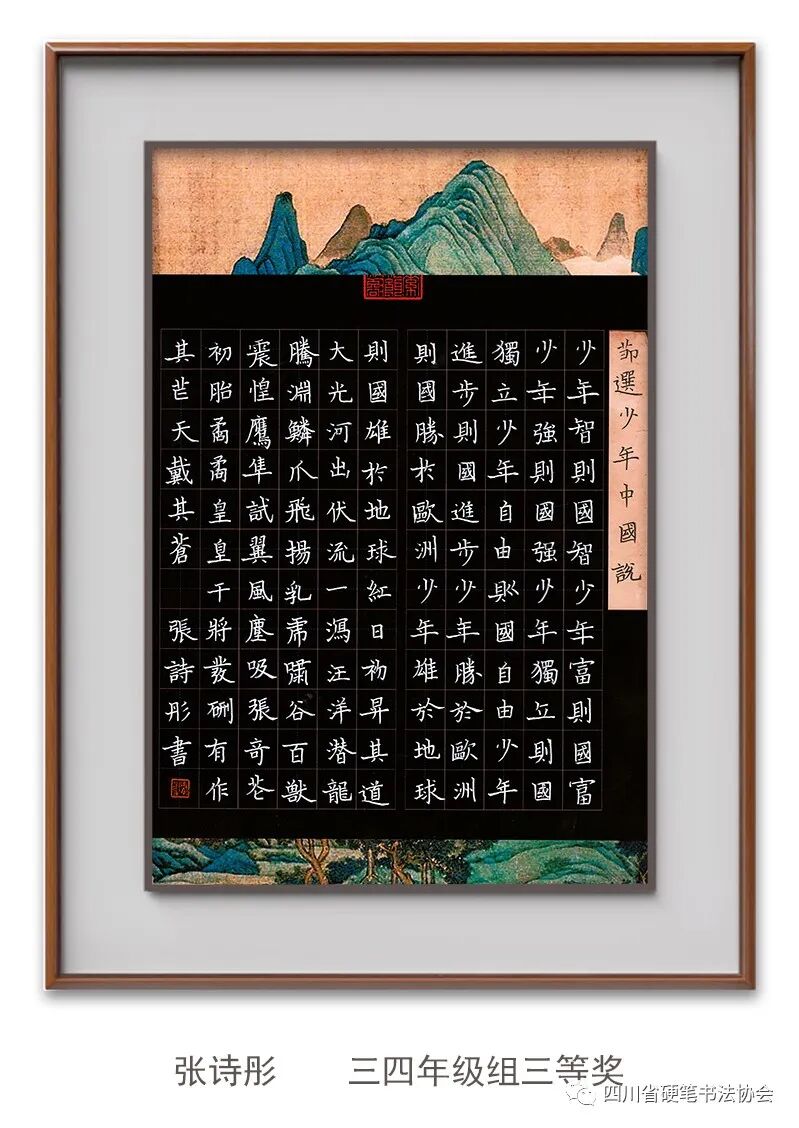 節選少年中國說
少年智則國智少年富則國富
少年強則國强少年獨立則國
獨立少年自由則國自由少年
進步則國進步少年勝於歐洲
則國勝於歐洲少年雄於地球
則國雄於地球紅日初昇其道
大光河出伏流一瀉汪洋潛龍
騰淵鱗爪飛揚乳虎嘯谷百獸
震惶鷹隼試翼風塵吸張奇花
初胎矞矞皇皇干將發硎有作
其芒天戴其蒼 張詩彤書
张诗彤 三四年级组三等奖
四川省硬笔书法协会